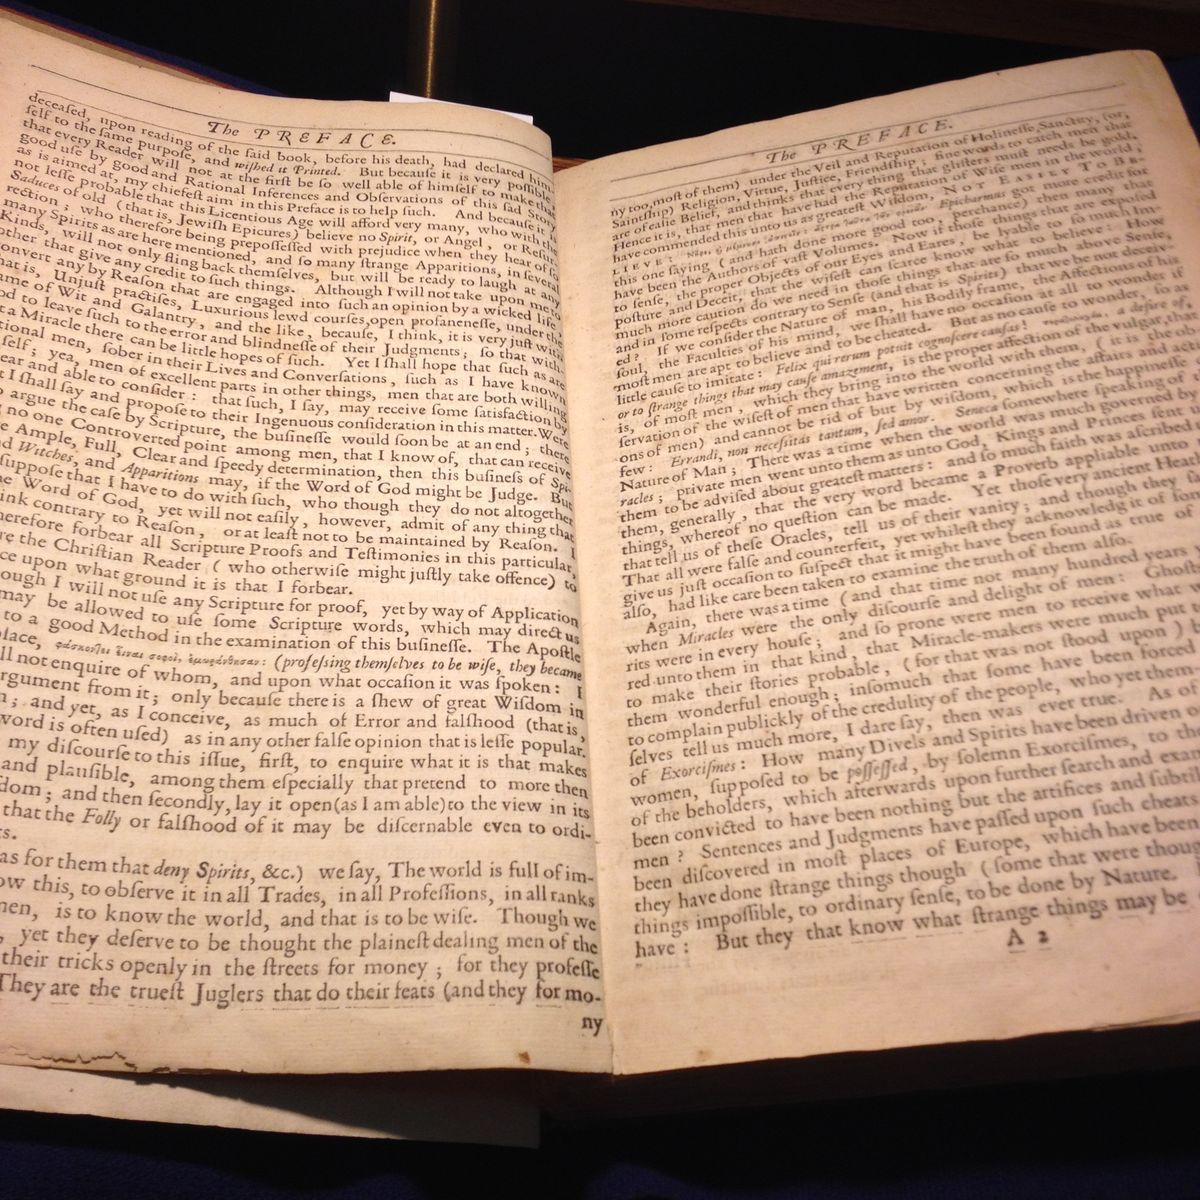 The PREFACE.
deceaſed, upon reading of the ſaid book, before his death, had declared him-
ſelf to the ſame purpoſe, and wiſhed it Printed. But becauſe it is very poſſible
that every Reader will not at the firſt be ſo well able of himſelf to make that
good uſe by good and Rational Inferences and Obſervations of this ſad Story
as is aimed at, my chiefeſt aim in this Preface is to help ſuch. And becauſe it is
not leſſe probable that this Licentious Age will afford very many, who with the
Saduces of old (that is, Jewiſh Epicures) believe no Spirit, or Angel, or Reſur-
rection; who therefore being prepoſſeſſed with prejudice when they hear of ſo
many Spirits as are here mentioned, and ſo many ſtrange Apparitions, in ſeveral
Kinds, will not only fling back themſelves, but will be ready to laugh at any
other that give any credit to ſuch things. Although I will not take upon me to
convert any by Reaſon that are engaged into ſuch an opinion by a wicked life,
that is, Unjuſt practiſes, Luxurious lewd courſes, open profaneneſſe, under the
name of Wit and Galantry, and the like, becauſe, I think, it is very juſt with
God to leave ſuch to the error and blindneſſe of their Judgments; ſo that with-
out a Miracle there can be little hopes of ſuch. Yet I ſhall hope that ſuch as are
tional men, ſober in their Lives and Converſations, ſuch as I have known
ſelf; yea, men of excellent parts in other things, men that are both willing
ear and able to conſider: that ſuch, I say, may receive ſome ſatisfaction by
t I ſhall ſay and propoſe to their Ingenuous conſideration in this matter. Were
o argue the caſe by Scripture, the buſineſſe would ſoon be at an end; there
g no one Controverted point among men, that I know of, that can receive
e Ample, Full, Clear and ſpeedy determination, then this buſineſs of Spi-
nd Witches, and Apparitions may, if the Word of God might be Judge. But
ſuppoſe that I have to do with ſuch, who though they do not altogether
he Word of God, yet will not eaſily, however, admit of any thing that
ink contrary to Reaſon, or at leaſt not to be maintained by Reaſon. I
herefore forbear all Scripture Proofs and Teſtimonies in this particular,
re the Chriſtian Reader (who otherwiſe might juſtly take offence) to
ce upon what ground it is that I forbear.
ough I will not uſe any Scripture for proof, yet by way of Application
may be allowed to uſe ſome Scripture words, which may direct us
to a good Method in the examination of this buſineſſe. The Apoſtle
lace, φάσκοντες εἶναι σοφοὶ, ἐμωράνθησαν: (profeſsing themſelves to be wiſe, they became
ll not enquire of whom, and upon what occaſion it was ſpoken: I
rgument from it; only becauſe there is a ſhew of great Wiſdom in
n; and yet, as I conceive, as much of Error and falſhood (that is,
word is often uſed) as in any other falſe opinion that is leſſe popular.
my diſcourſe to this iſſue, firſt, to enquire what it is that makes
and plauſible, among them eſpecially that pretend to more then
dom; and then ſecondly, lay it open (as I am able) to the view in its
that the Folly or falſhood of it may be diſcernable even to ordi-
ts.
as for them that deny Spirits, &c.) we ſay, The world is full of im-
ow this, to obſerve it in all Trades, in all Profeſſions, in all ranks
men, is to know the world, and that is to be wiſe. Though we
, yet they deſerve to be thought the plaineſt dealing men of the
their tricks openly in the ſtreets for money; for they profeſſe
They are the trueſt Juglers that do their feats (and they for mo-
ny
The PREFACE.
ny too, moſt of them) under the Veil and Reputation of Holineſſe, Sanctity, (or,
Saintſhip) Religion, Virtue, Juſtice, Friendſhip; fine words to catch men that
are of eaſie Belief, and thinks that every thing that gliſters muſt needs be gold.
Hence it is, that men that have had the Reputation of Wiſe men in the world,
have commended this unto us as greateſt Wiſdom, NOT EASILY TO BE-
LIEVE: Epicharmus got more credit for
this one ſaying (and had done more good too, perchance) then many that
have been the Authors of vaſt Volumes. Now if thoſe things that are expoſed
to ſenſe, the proper Objects of our Eyes and Eares, be lyable to ſo much Im-
poſture and Deceit, that the wiſeſt can ſcarce know what to believe: How
much more caution do we need in thoſe things that are ſo much above Senſe,
and in ſome reſpects contrary to Senſe (and that is Spirits) that we be not cheat-
ed? If we conſider the Nature of man, his Bodily frame, the Affections of his
ſoul, the Faculties of his mind, we ſhall have no occaſion at all to wonder if
moſt men are apt to believe and to be cheated. But as no cauſe to wonder, ſo as
little cauſe to imitate: Felix qui rerum potuit cognoſcere cauſas! a deſire of,
or to ſtrange things that may cauſe amazement, is the proper affection of the vulgar, that
is, of moſt men, which they bring into the world with them, (it is the ob-
ſervation of the wiſeſt of men that have written concerning the affairs and acti-
ons of men) and cannot be rid of but by wiſdom, which is the happineſſe of
few: Errandi, non neceſſitas tantum, ſed amor. Seneca ſomewhere ſpeaking of the
Nature of Man; There was a time when the world was much governed by
racles; private men went unto them as unto God, Kings and Princes ſent unto
them to be adviſed about greateſt matters: and ſo much faith was aſcribed u
them, generally, that the very word became a Proverb appliable unto
things, whereof no queſtion can be made. Yet thoſe very ancient Heath
that tell us of theſe Oracles, tell us of their vanity; and though they ſa
That all were falſe and counterfeit, yet whileſt they acknowledg it of ſom
give us juſt occaſion to ſuſpect that it might have been found as true of
alſo, had like care been taken to examine the truth of them alſo.
Again, there was a time (and that time not many hundred years
when Miracles were the only diſcourſe and delight of men: Ghoſts
rits were in every houſe; and ſo prone were men to receive what
red unto them in that kind, that Miracle-makers were much put
to make their ſtories probable, (for that was not ſtood upon) b
them wonderful enough; inſomuch that ſome have been forced
to complain publickly of the credulity of the people, who yet them
ſelves tell us much more, I dare ſay, then was ever true. As of
of Exorciſmes: How many Divels and Spirits have been driven o
women, ſuppoſed to be poſſeſſed, by ſolemn Exorciſmes, to the
of the beholders, which afterwards upon further ſearch and exam
been convicted to have been nothing but the artifices and ſubtil
men? Sentences and Judgments have paſſed upon ſuch cheats
been diſcovered in moſt places of Europe, which have been
they have done ſtrange things though (ſome that were thoug
things impoſſible, to ordinary ſenſe, to be done by Nature.
have: But they that know what ſtrange things may be
A 2